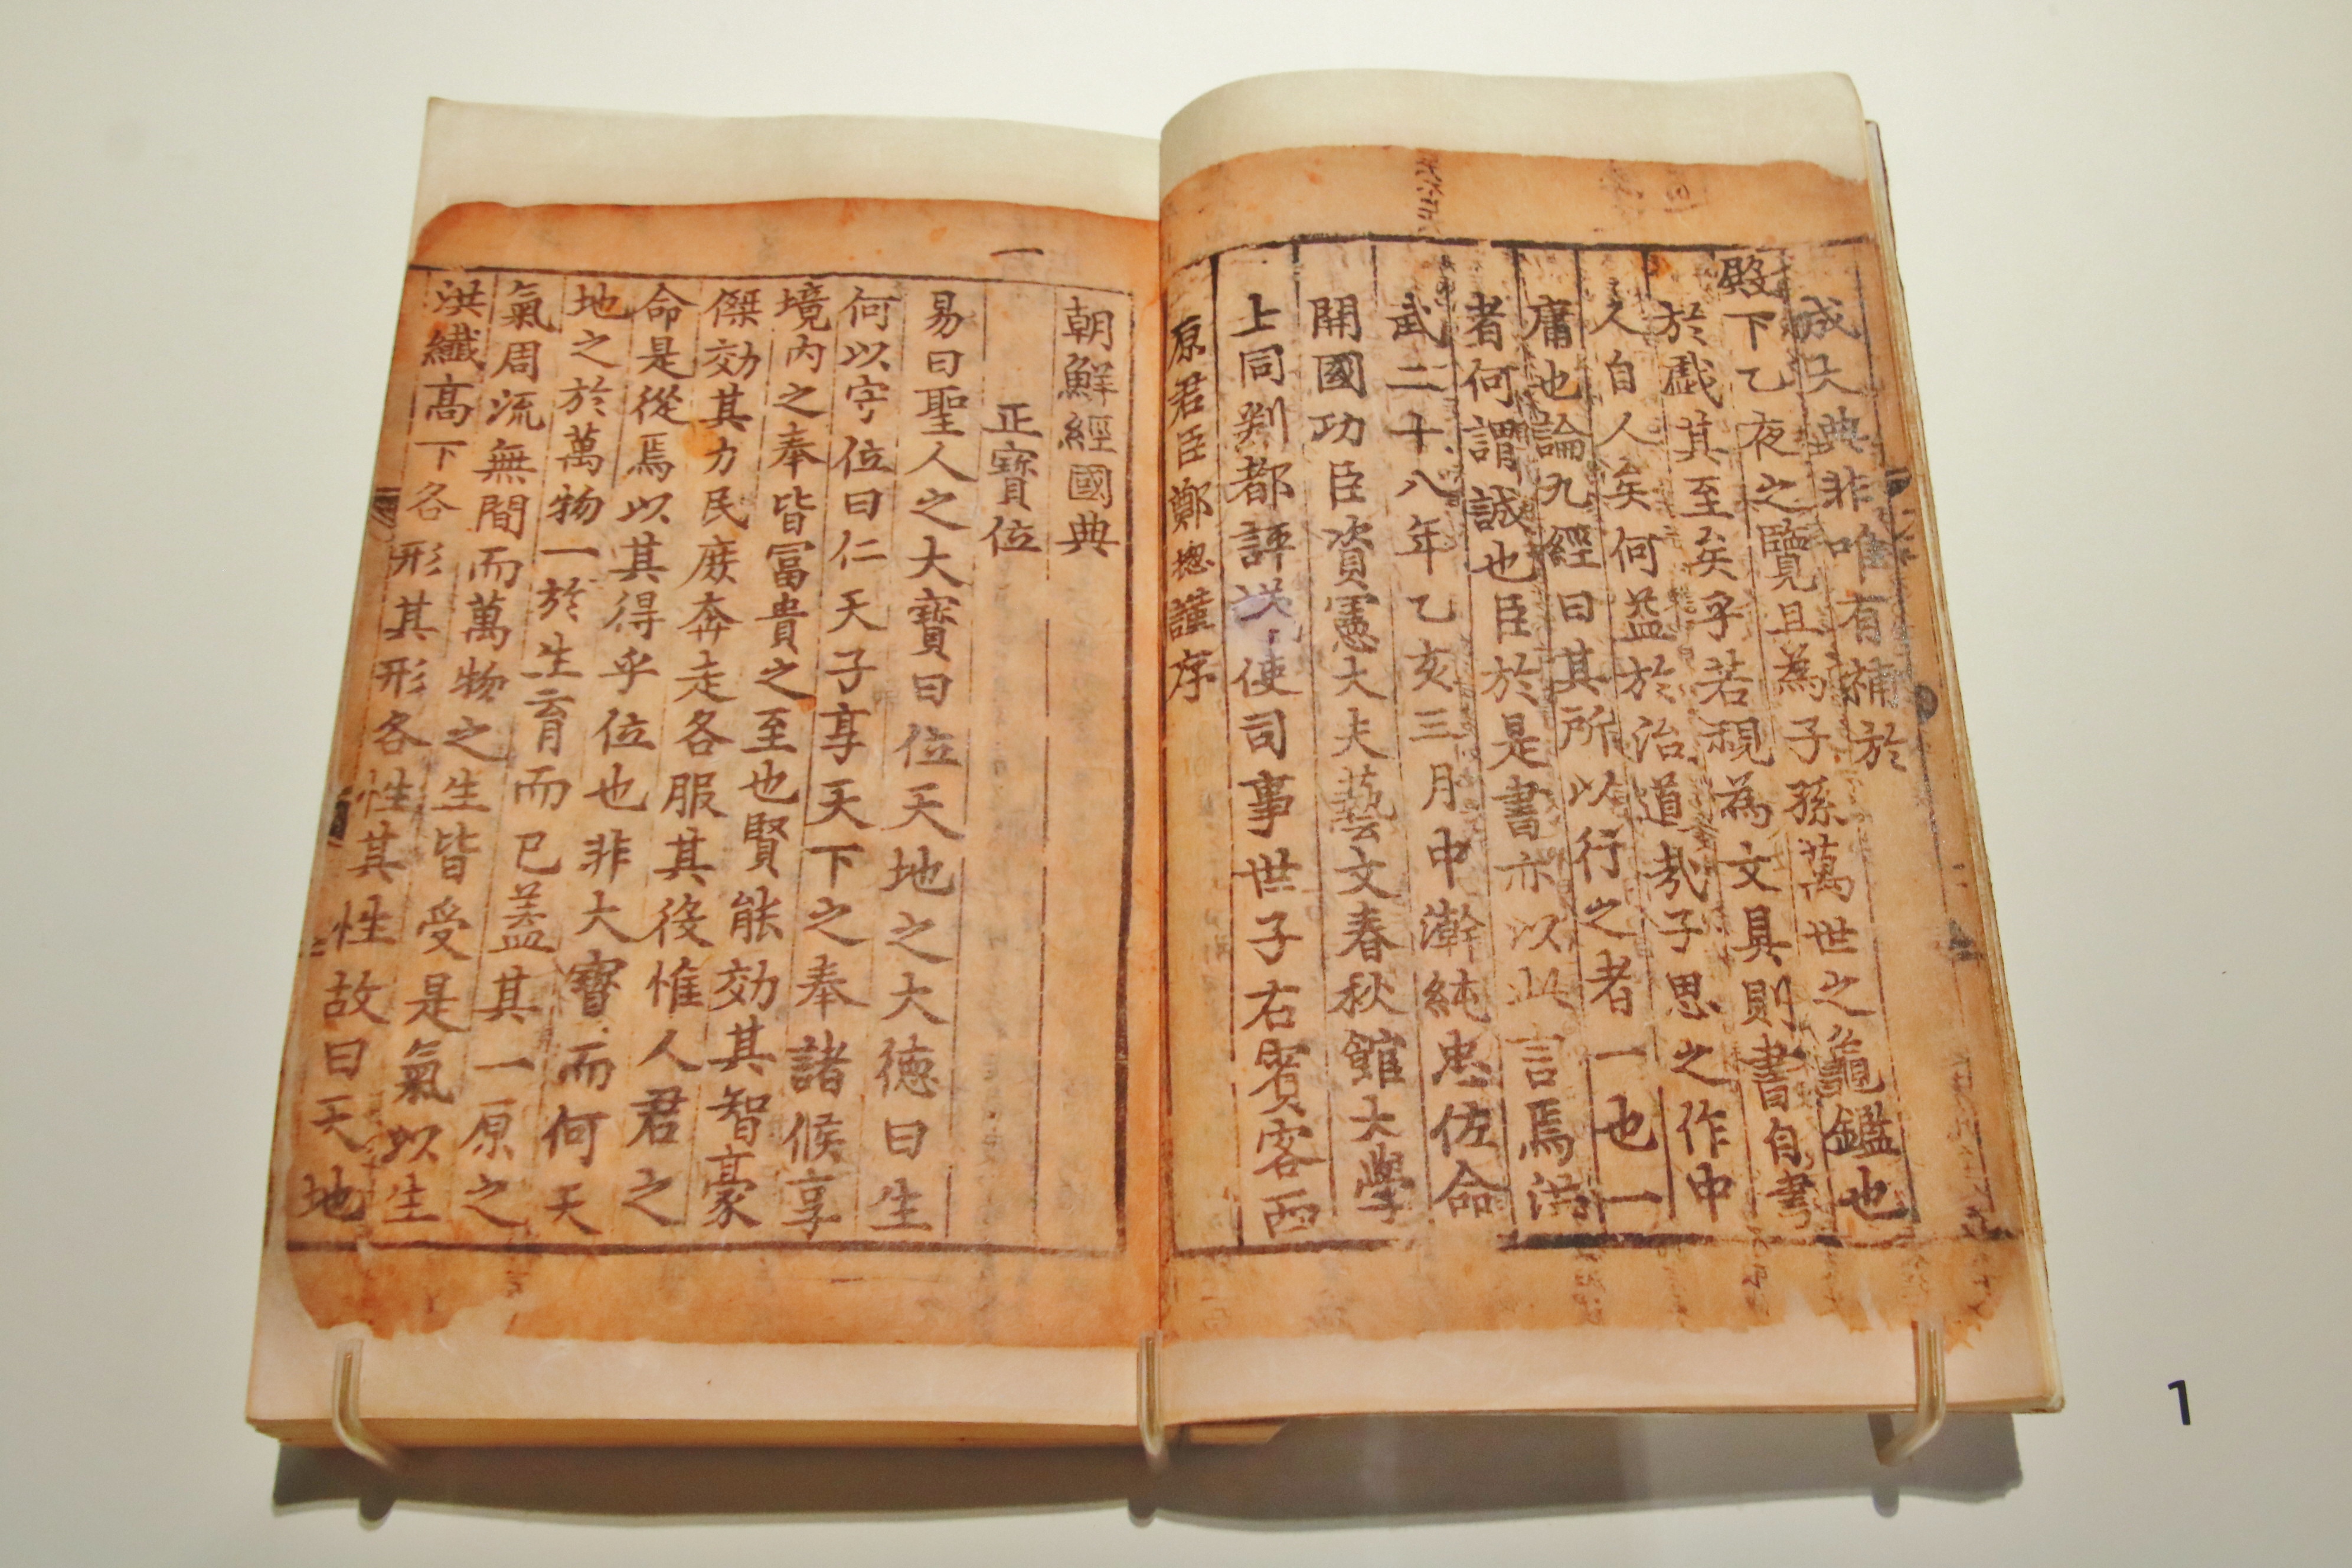 成大典非唯有補於
殿下乙夜之覽且為子孫萬世之龜鑑也
於戲其至矣乎若視為文具則書自書
人自人矣何益於治道哉子思之作中
庸也論九經曰其所以行之者一也一
者何謂誠也臣於是書亦以此言焉洪
武二十八年乙亥三月中澣純忠佐命
開國功臣資憲大夫藝文春秋館大學
上同判都評議使司事世子右賓客西
原君臣鄭摠謹序
朝鮮經國典
一
正寶位
易曰聖人之大寶曰位天地之大德曰生
何以守位曰仁天子享天下之奉諸侯享
境內之奉皆冨貴之至也賢能効其智豪
傑効其力民庶奔走各服其役惟人君之
命是從焉以其得乎位也非大寶而何天
地之於萬物一於生育而已蓋其一原之
氣周流無間而萬物之生皆受是氣以生
洪纖高下各形其形各性其性故曰天地